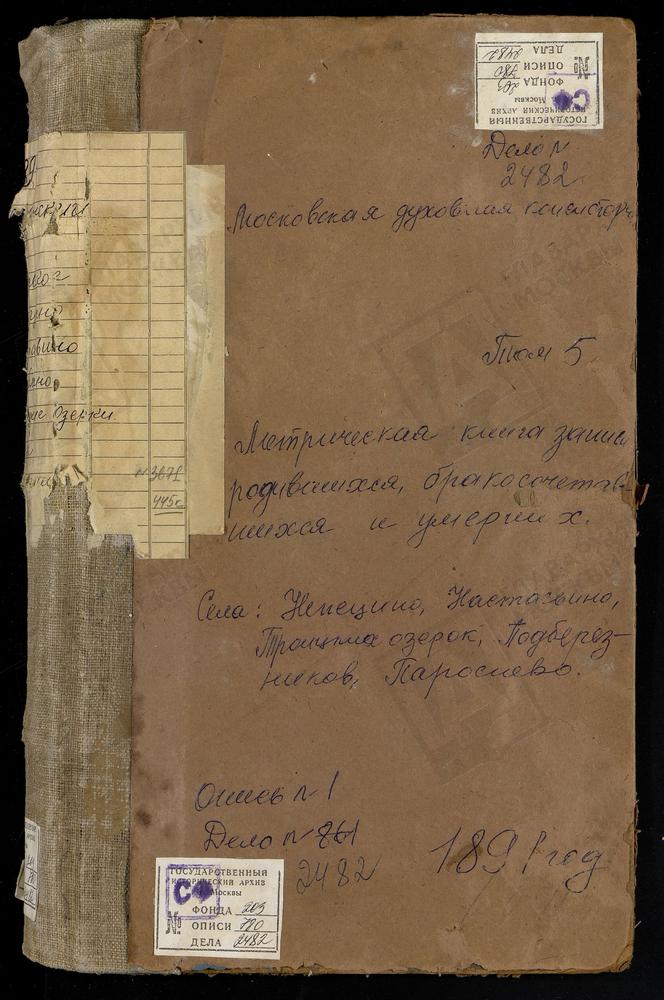 ГОСУДАРСТВЕННЫЙ
ИСТОРИЧЕСКИЙ АРХИВ
Москвы
СФ
ФОНДА 203
№ ОПИСИ 780
ДЕЛА 2482
Дело №
2482
Московская духовная консистория
Том 5
Метрическая книга записи
родившихся, бракосочетав-
шихся и умерших.
Села: Непецино, Настасьино,
Троицкие озерок, Подберез-
ников, Парфиево.
Опись № 1
Дело № 861
2482
1891 год
ГОСУДАРСТВЕННЫЙ
ИСТОРИЧЕСКИЙ АРХИВ
Москвы
СФ
ФОНДА 203
№ ОПИСИ 780
ДЕЛА 2482
Озерки
№ 3671
445с